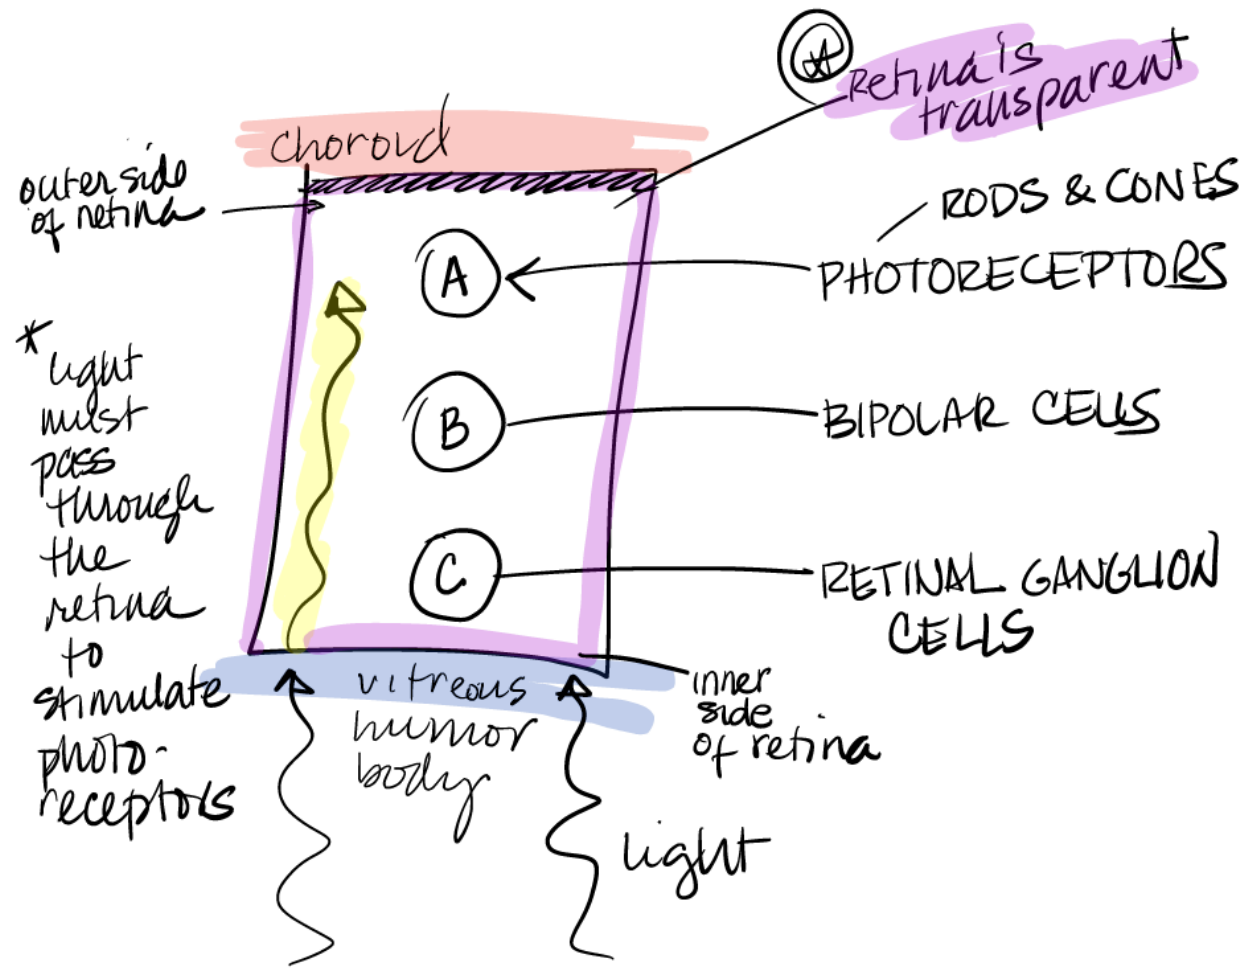 Retina is
transparent
choroid
outer side
of retina
RODS & CONES
PHOTORECEPTORS
A
*
light
must
pass
through
the
retina
to
stimulate
photo-
receptors
B
BIPOLAR CELLS
C
RETINAL GANGLION
CELLS
vitreous
humor
body
inner
side
of retina
light